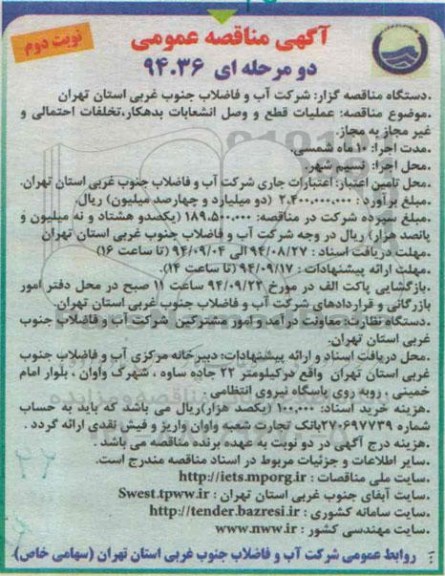 آگهی مناقصه عمومی
نوبت دوم
دو مرحله ای ۹۴.۳۶
.دستگاه مناقصه گزار: شرکت آب و فاضلاب جنوب غربی استان تهران
.موضوع مناقصه: عملیات قطع و وصل انشعابات بدهکار،تخلفات احتمالی و
غیر مجاز به مجاز.
.مدت اجرا: ۱۰ ماه شمسی.
.محل اجرا: نسیم شهر.
.محل تامین اعتبار: اعتبارات جاری شرکت آب و فاضلاب جنوب غربی استان تهران.
.مبلغ برآورد : ۲,۴۰۰,۰۰۰,۰۰۰ (دو میلیارد و چهارصد میلیون) ریال
.مبلغ سپرده شرکت در مناقصه: ۱۸۹,۵۰۰,۰۰۰ (یکصدو هشتاد و نه میلیون و
پانصد هزار) ریال در وجه شرکت آب و فاضلاب جنوب غربی استان تهران
.مهلت دریافت اسناد : ۹۴/۰۸/۲۷ الی ۹۴/۰۹/۰۴ (تا ساعت ۱۶)
.مهلت ارائه پیشنهادات : ۹۴/۰۹/۱۷ (تا ساعت ۱۴).
.بازگشایی پاکت الف در مورخ ۹۴/۰۹/۲۲ ساعت ۱۱ صبح در محل دفتر امور
بازرگانی و قراردادهای شرکت آب و فاضلاب جنوب غربی استان تهران.
.دستگاه نظارت: معاونت درآمد و امور مشترکین شرکت آب و فاضلاب جنوب
غربی استان تهران.
.محل دریافت اسناد و ارائه پیشنهادات: دبیرخانه مرکزی آب و فاضلاب جنوب
غربی استان تهران واقع درکیلومتر ۲۲ جاده ساوه ، شهرک واوان ، بلوار امام
خمینی ، روبه روی پاسگاه نیروی انتظامی .
.هزینه خرید اسناد: ۱۰۰,۰۰۰ (یکصد هزار)ریال می باشد که باید به حساب
شماره ۲۷۰۶۹۷۷۳۹بانک تجارت شعبه واوان واریز و فیش نقدی ارائه گردد .
.هزینه درج آگهی در دو نوبت به عهده برنده مناقصه می باشد .
.سایر اطلاعات و جزئیات مربوط در اسناد مناقصه مندرج است.
.سایت ملی مناقصات : http://iets.mporg.ir
.سایت آبفای جنوب غربی استان تهران : Swest.tpww.ir
.سایت سامانه کشوری : http://tender.bazresi.ir
.سایت مهندسی کشور : www.nww.ir
روابط عمومی شرکت آب و فاضلاب جنوب غربی استان تهران (سهامی خاص)